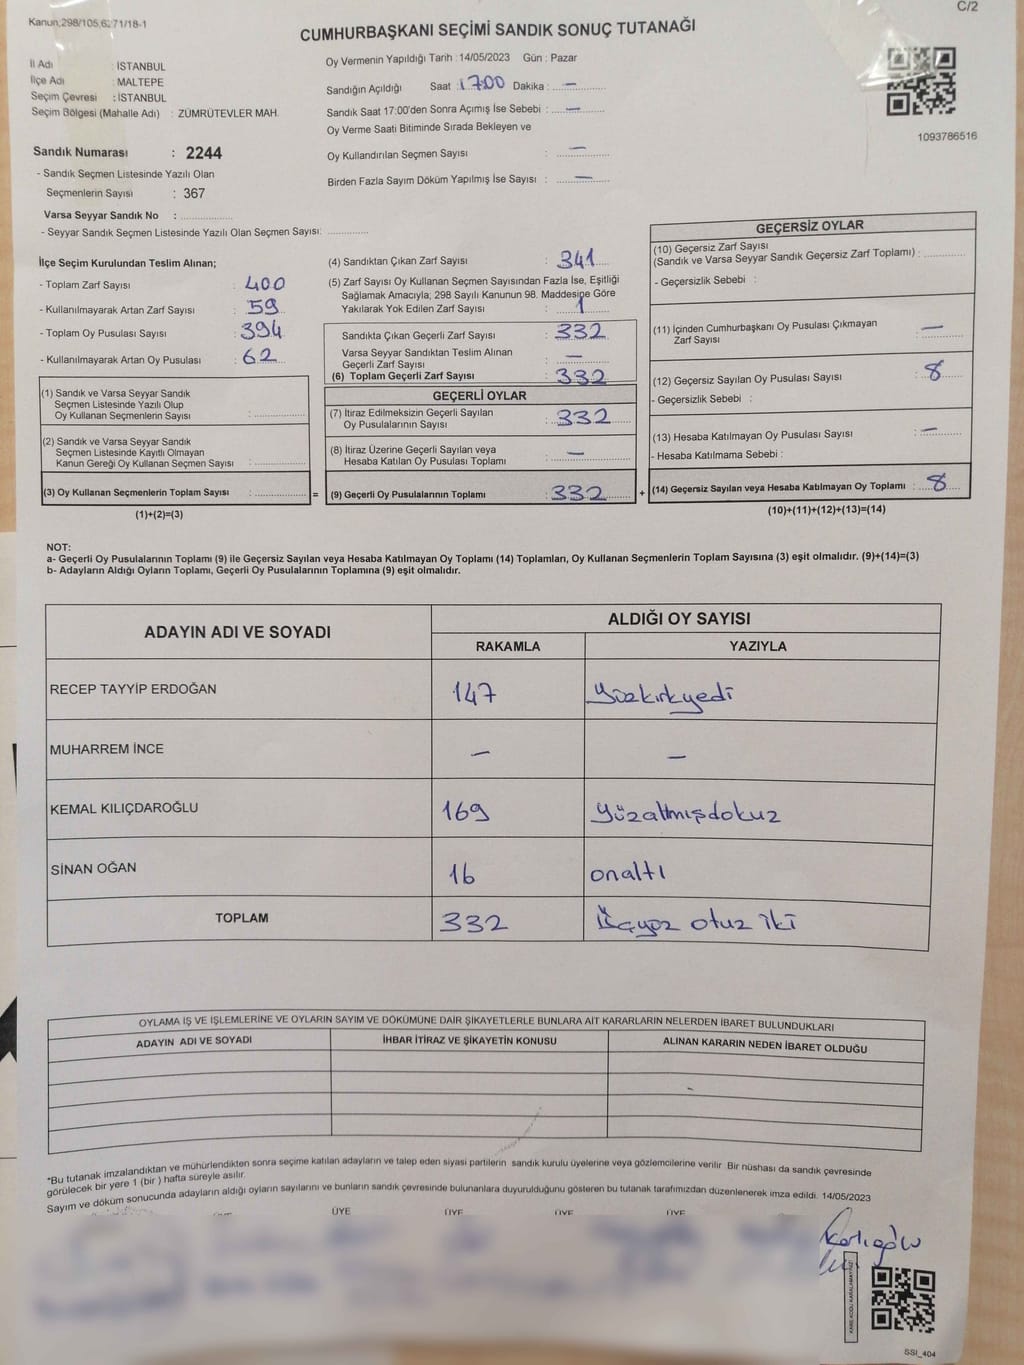 Kanun;298/105,6271/18-1
C/2
CUMHURBAŞKANI SEÇİMİ SANDIK SONUÇ TUTANAĞI
İl Adı : İSTANBUL
İlçe Adı : MALTEPE
Seçim Çevresi : İSTANBUL
Seçim Bölgesi (Mahalle Adı) : ZÜMRÜTEVLER MAH.
Sandık Numarası : 2244
- Sandık Seçmen Listesinde Yazılı Olan
Seçmenlerin Sayısı : 367
Varsa Seyyar Sandık No : ..............
- Seyyar Sandık Seçmen Listesinde Yazılı Olan Seçmen Sayısı: ..............
Oy Vermenin Yapıldığı Tarih : 14/05/2023 Gün : Pazar
Sandığın Açıldığı Saat : 17:00 Dakika : —
Sandık Saat 17:00'den Sonra Açımış İse Sebebi : —
Oy Verme Saati Bitiminde Sırada Bekleyen ve
Oy Kullandırılan Seçmen Sayısı : —
Birden Fazla Sayım Döküm Yapılmış İse Sayısı : —
1093786516
İlçe Seçim Kurulundan Teslim Alınan;
- Toplam Zarf Sayısı : 400
- Kullanılmayarak Artan Zarf Sayısı : 59
- Toplam Oy Pusulası Sayısı : 394
- Kullanılmayarak Artan Oy Pusulası : 62
(1) Sandık ve Varsa Seyyar Sandık
Seçmen Listesinde Yazılı Olup
Oy Kullanan Seçmenlerin Sayısı : ..............
(2) Sandık ve Varsa Seyyar Sandık
Seçmen Listesinde Kayıtlı Olmayan
Kanun Gereği Oy Kullanan Seçmen Sayısı : ..............
(3) Oy Kullanan Seçmenlerin Toplam Sayısı : .............. =
(1)+(2)=(3)
(4) Sandıktan Çıkan Zarf Sayısı : 341
(5) Zarf Sayısı Oy Kullanan Seçmen Sayısından Fazla İse, Eşitliği
Sağlamak Amacıyla; 298 Sayılı Kanunun 98. Maddesine Göre
Yakılarak Yok Edilen Zarf Sayısı : 1
Sandıkta Çıkan Geçerli Zarf Sayısı : 332
Varsa Seyyar Sandıktan Teslim Alınan
Geçerli Zarf Sayısı : —
(6) Toplam Geçerli Zarf Sayısı : 332
GEÇERLİ OYLAR
(7) İtiraz Edilmeksizin Geçerli Sayılan
Oy Pusulalarının Sayısı : 332
(8) İtiraz Üzerine Geçerli Sayılan veya
Hesaba Katılan Oy Pusulası Toplamı : —
(9) Geçerli Oy Pusulalarının Toplamı : 332 +
GEÇERSİZ OYLAR
(10) Geçersiz Zarf Sayısı
(Sandık ve Varsa Seyyar Sandık Geçersiz Zarf Toplamı) : ..............
- Geçersizlik Sebebi :
(11) İçinden Cumhurbaşkanı Oy Pusulası Çıkmayan
Zarf Sayısı : —
(12) Geçersiz Sayılan Oy Pusulası Sayısı : 8
- Geçersizlik Sebebi :
(13) Hesaba Katılmayan Oy Pusulası Sayısı : —
- Hesaba Katılmama Sebebi :
(14) Geçersiz Sayılan veya Hesaba Katılmayan Oy Toplamı : 8
(10)+(11)+(12)+(13)=(14)
NOT:
a- Geçerli Oy Pusulalarının Toplamı (9) ile Geçersiz Sayılan veya Hesaba Katılmayan Oy Toplamı (14) Toplamları, Oy Kullanan Seçmenlerin Toplam Sayısına (3) eşit olmalıdır. (9)+(14)=(3)
b- Adayların Aldığı Oyların Toplamı, Geçerli Oy Pusulalarının Toplamına (9) eşit olmalıdır.
ADAYIN ADI VE SOYADI ALDIĞI OY SAYISI
RAKAMLA YAZIYLA
RECEP TAYYİP ERDOĞAN 147 Yüzkırkyedi
MUHARREM İNCE — —
KEMAL KILIÇDAROĞLU 169 Yüzaltmışdokuz
SİNAN OĞAN 16 onaltı
TOPLAM 332 Üçyüz otuz iki
OYLAMA İŞ VE İŞLEMLERİNE VE OYLARIN SAYIM VE DÖKÜMÜNE DAİR ŞİKAYETLERLE BUNLARA AİT KARARLARIN NELERDEN İBARET BULUNDUKLARI
ADAYIN ADI VE SOYADI İHBAR İTİRAZ VE ŞİKAYETİN KONUSU ALINAN KARARIN NEDEN İBARET OLDUĞU
*Bu tutanak imzalandıktan ve mühürlendikten sonra seçime katılan adayların ve talep eden siyasi partilerin sandık kurulu üyelerine veya gözlemcilerine verilir. Bir nüshası da sandık çevresinde
görülecek bir yere 1 (bir ) hafta süreyle asılır.
Sayım ve döküm sonucunda adayların aldığı oyların sayılarını ve bunların sandık çevresinde bulunanlara duyurulduğunu gösteren bu tutanak tarafımızdan düzenlenerek imza edildi. 14/05/2023
ÜYE ÜYE ÜYE ÜYE
KARE KODU KARALAMAYINIZ!
SSI_404